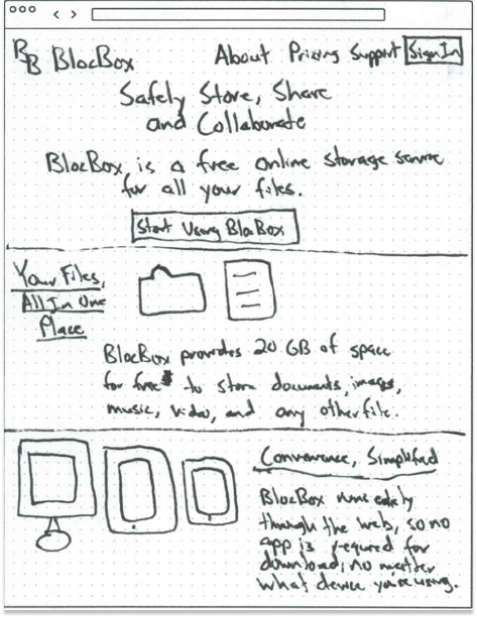 BB BlocBox About Pricing Support Sign In
Safely Store, Share
and Collaborate
BlocBox is a free online storage service
for all your files.
Start Using BlocBox
Your Files,
All In One
Place
BlocBox provides 20 GB of space
for free to store documents, images,
music, video, and any other file.
Convenience, Simplified
BlocBox runs
through the web, so no
app is required for
download, no matter
what device you're using.